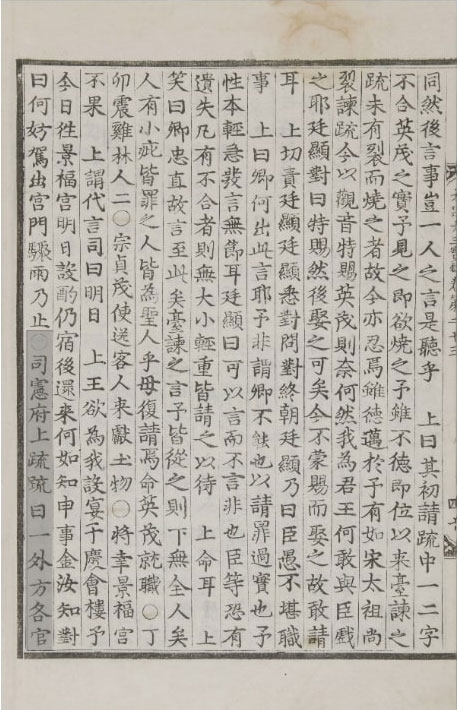 同然後言事豈一人之言是聽乎　上曰其初請疏中一二字
不合英茂之實予見之即欲燒之予雖不德即位以來臺諫之
疏未有裂而燒之者故今亦忍焉雖德邁於予有如宋大祖尚
裂諫疏今以觀音特賜英茂則奈何然我為君王何敢與臣戲
之耶廷顯對曰特賜然後娶之可矣今不蒙賜而娶之故敢請
耳　上切責廷顯廷顯悉對問對終朝廷顯乃曰臣愚不堪職
事　上曰卿何出此言耶予非謂卿不能也以請罪過實也予
性本輕急發言無節耳廷顯曰可以言而不言非也臣等恐有
遺失乃有不合者則無大小輕重皆請之以待　上命耳　上
笑曰卿忠直故言至此矣臺諫之言予皆從之則下無全人矣
人有小疵皆罪之人皆為聖人乎毋復請焉命英茂就職○丁
卯震雞林人二○宗貞茂使送客人来獻土物○將幸景福宮
不果　上謂代言司曰明日　上王欲為我設宴于慶會樓予
今日徃景福宮明日設酌仍宿後還来何如知申事金汝知對
曰何妨駕出宮門驟雨乃止○司憲府上疏疏曰一外方各官